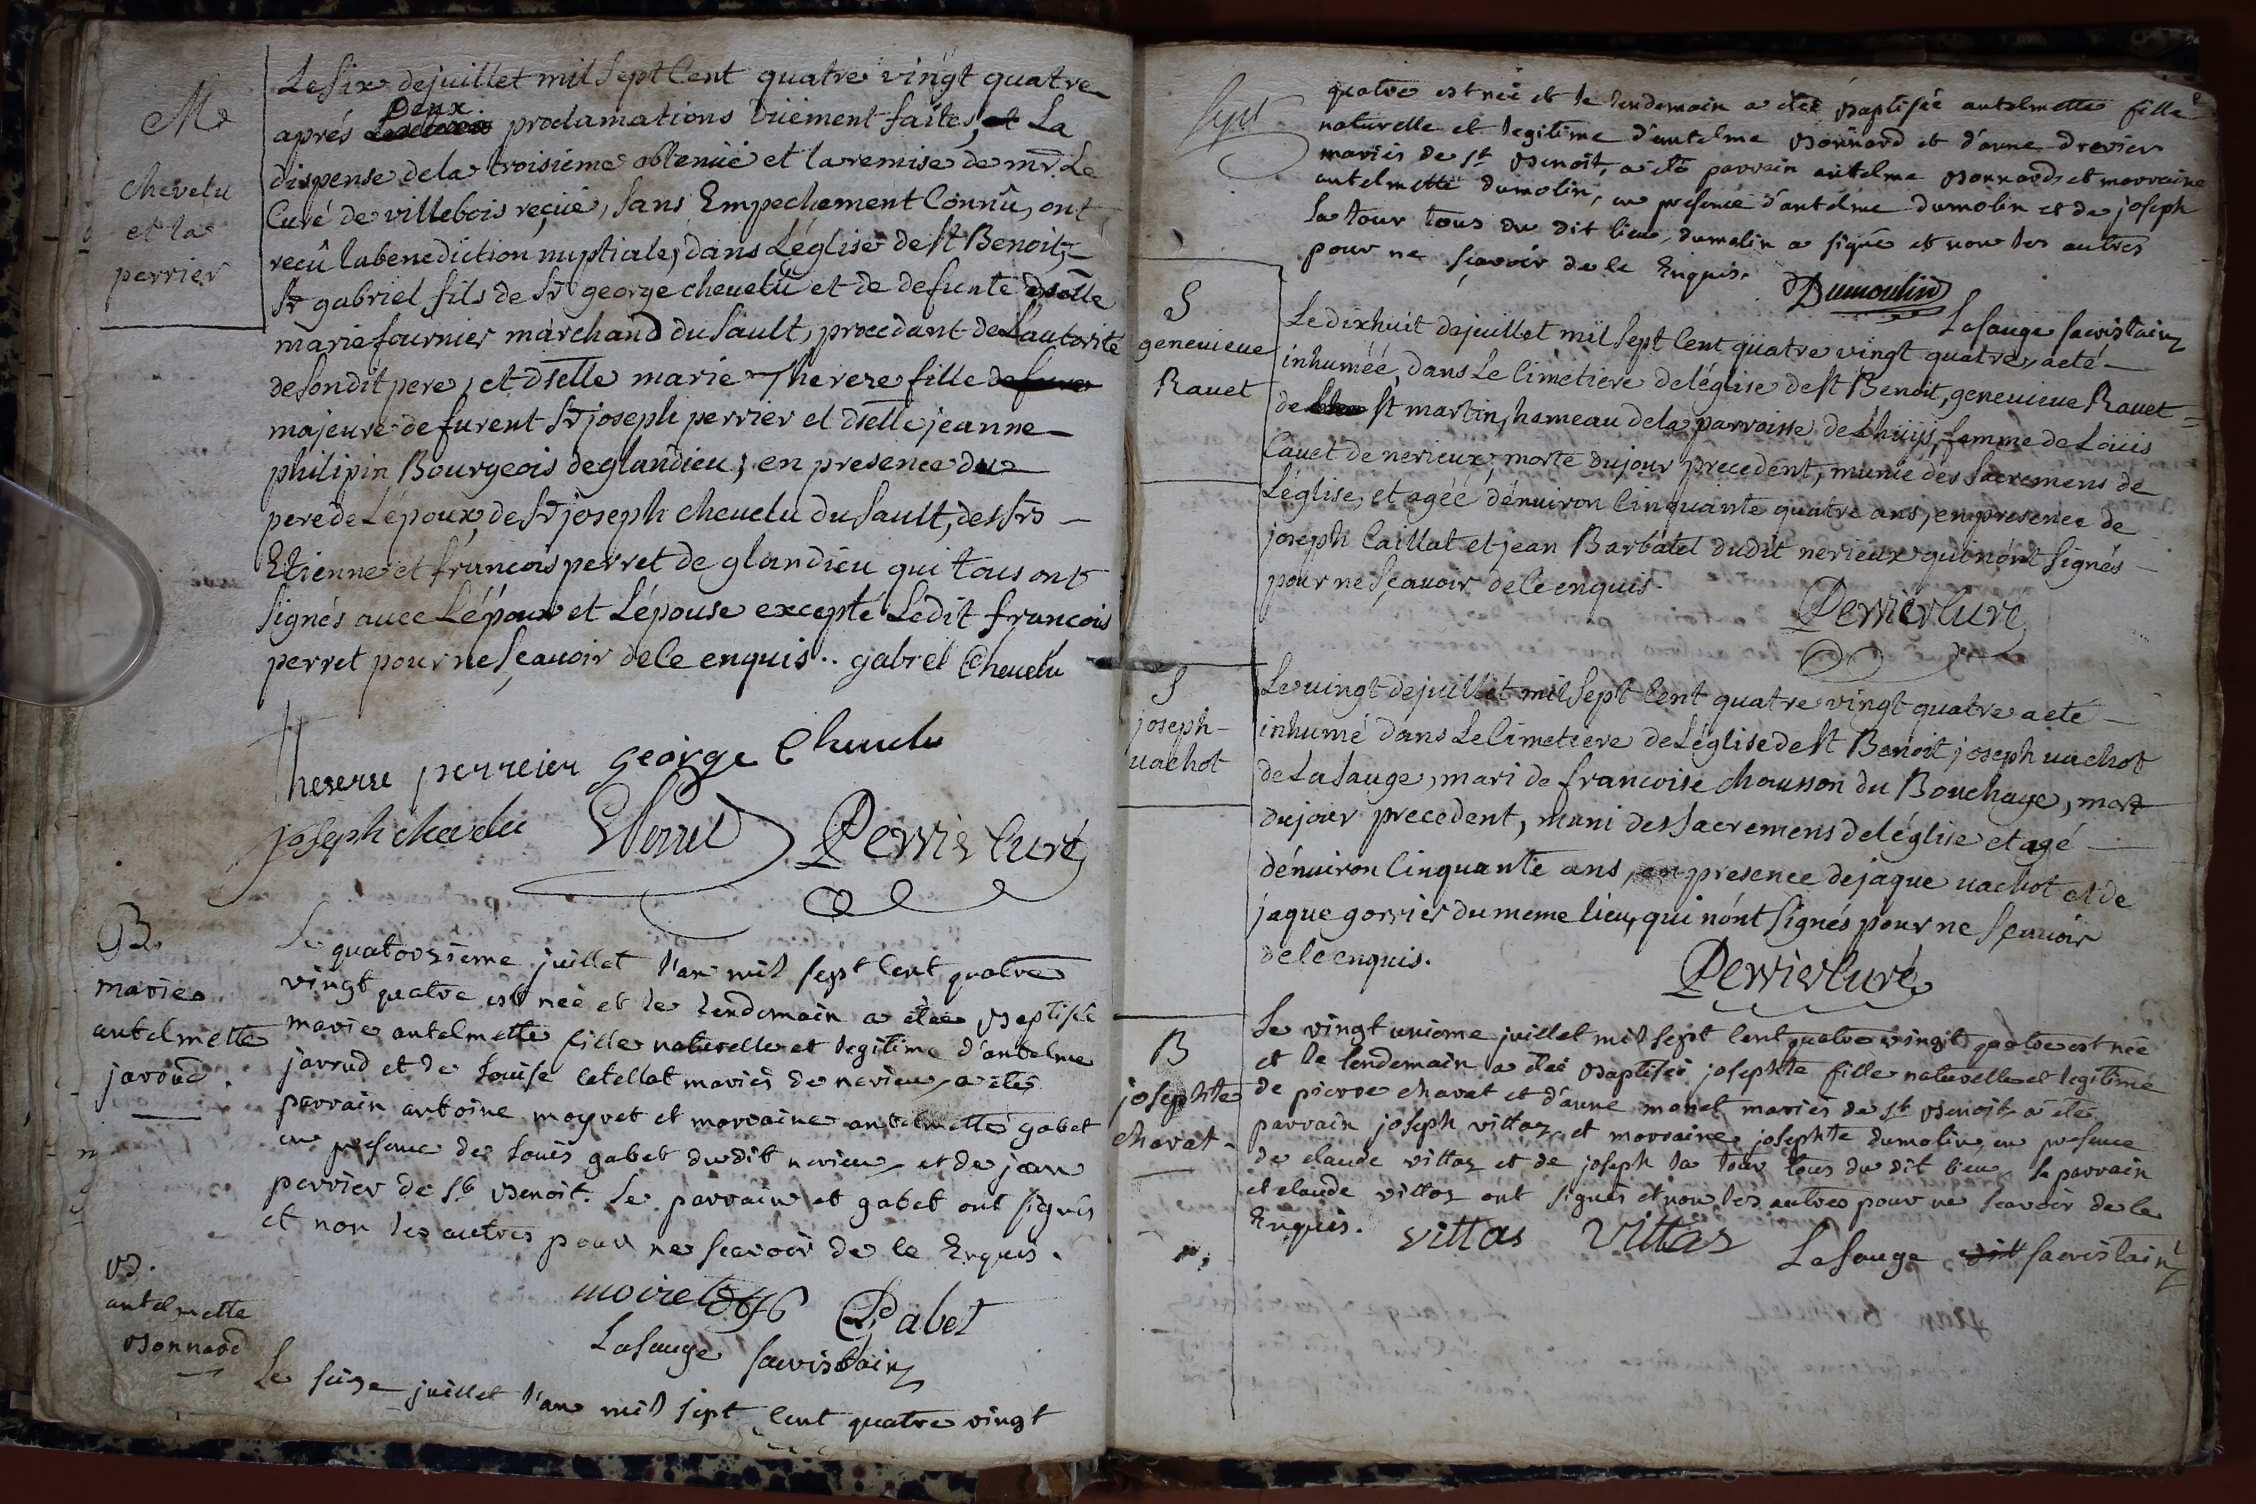 M
chevelu
et la
perrier
Le Six de juillet mil Sept Cent quatre vingt quatre
aprés deux proclamations düement faites, La
dispense de la troisieme obtenüe et la remise de mr. Le
Curé de villebois reçüe, Sans Empechement Connû, ont
reçû la benediction nuptiale, dans L'église de St Benoit,
Sr gabriel fils de Sr george chevelu et de defunte dselle
marie fournier marchand du Sault, procedant de L'autorité
de Son dit pere, et Dselle marie Therese fille
majeure de furent Sr joseph perrier et dselle jeanne
philipin Bourgeois de glandieu; en presence du
pere de L'époux, de Sr joseph chevelu du Sault, des Srs
Etienne et francois perret de glandieu qui tous ont
Signés avec L'époux et L'épouse excepté Ledit francois
perret pour ne Sçavoir de ce enquis.. gabriel Chevelu
therese perreier george Chevelu
joseph chevelu Perret Perrier Curé
B.
marie
antelmette
jaroud.
Le quatorzieme juillet l'an mil sept cent quatre
vingt quatre est neé et le lendemain a eteé Baptiseé
marie antelmette fille naturelle et legitime d'antelme
jarrud et de Louise Catellat mariés de nerieu, a eté
parrain antoine moyret et marraine antelmette gabet
en presence de Louis gabet du dit nerieu et de jean
perrier de St Benoit. Le parrain et gabet ont signés
et non les autres pour ne scavoir de ce Enquis.
moiret gabet
Lasauge sacristain
B.
antelmette
Bonnard
Le seize juillet l'an mil sept cent quatre vingt
Sept
quatre est neé et le lendemain a eteé Baptiseé antelmette fille
naturelle et legitime d'antelme Bonnard et d'anne drevier
mariés de St Benoit, a eté parrain antelme Bonnard et marraine
antelmette dumolin, en presence d'antelme dumolin et de joseph
la tour tous du dit lieu, dumolin a signé et non les autres
pour ne sçavoir de ce Enquis. Dumoulin
Lasauge sacristain
S
genevieve
Ravet
Le dix huit de juillet mil Sept Cent quatre vingt quatre, a eté
inhumée, dans Le Cimetiere de L'église de St Benoit, genevieve Ravet
de St martin, hameau de la parroisse de Lhüijs, femme de Louis
Cavet de nerieux, morte du jour precedent, munie des Sacremens de
L'église, et agée d'énviron Cinquante quatre ans, en presence de
joseph Caillat et jean Barbatel dudit nerieux qui n'ont Signés
pour ne Sçavoir de ce enquis.
Perrier Curé
S
joseph
vachot
Le vingt de juillet mil Sept Cent quatre vingt quatre a eté
inhumé dans Le Cimetiere de L'église de St Benoit joseph vachot
de La Sauge, mari de francoise chausson du Bouchage, mort
du jour precedent, muni des Sacremens de l'église et agé
d'énviron Cinquante ans, en presence de jaque vachot et de
jaque gorrier du meme lieu, qui n'ont Signés pour ne Sçavoir
de ce enquis.
Perrier Curé
B
josephte
chavat
Le vingt unieme juillet mil sept cent quatre vingt quatre est neé
et le lendemain a eteé Baptiseé josephte fille naturelle et legitime
de pierre chavat et d'anne monet mariés de St Benoit a eté
parrain joseph villaz et marraine josephte dumolin, en presence
de claude villaz et de joseph la tour tous du dit lieu. Le parrain
et claude villaz ont signés et non les autres pour ne scavoir de ce
Enquis. villas villaz
Lasauge sacristain